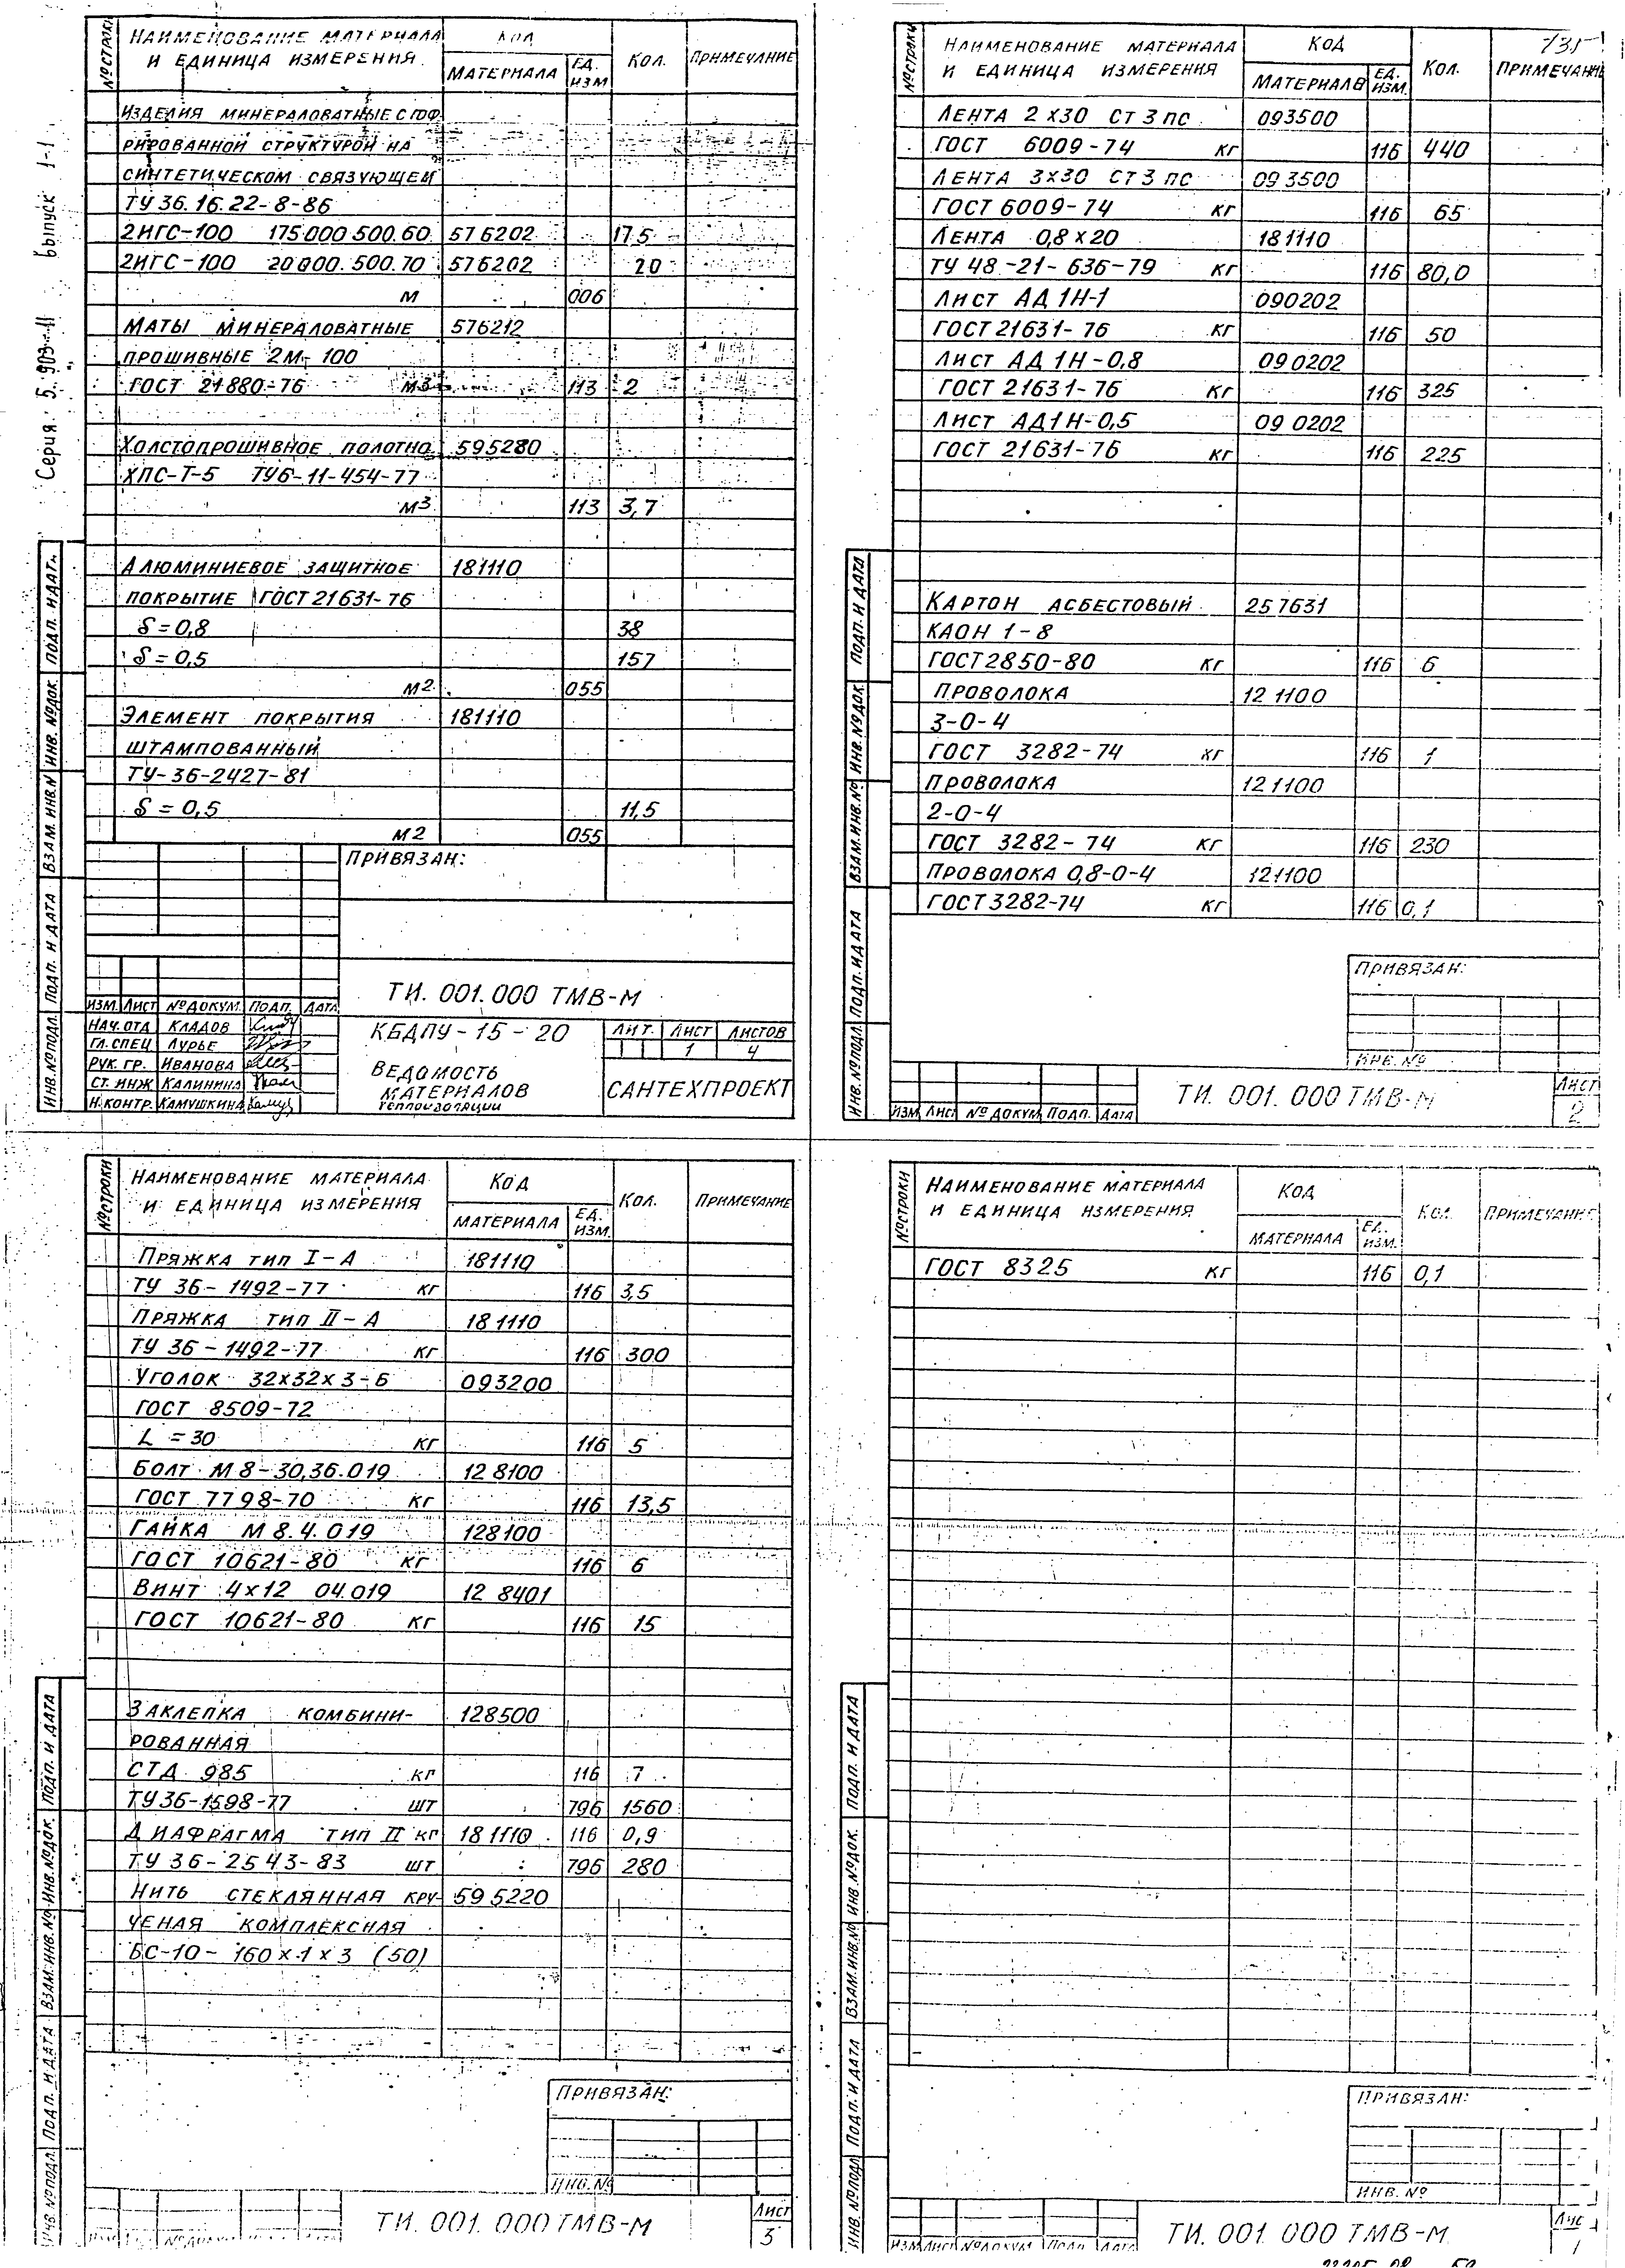 Серия: 5.903-11 выпуск 1-1
№ строки
Наименование материала и единица измерения
Код
материала
Ед. изм
Кол.
Примечание
Изделия минераловатные с гоф
рированной структурой на
синтетическом связующем
ТУ 36.16.22-8-86
2ИГС-100 175000.500.60 576202 17.5
2ИГС-100 20000.500.70 576202 20
м 006
Маты минераловатные 576212
прошивные 2М-100
ГОСТ 21880-76 м3 113 2
Холстопрошивное полотно 595280
ХПС-Т-5 ТУ6-11-454-77
м3 113 3,7
Алюминиевое защитное 181110
покрытие ГОСТ 21631-76
δ=0,8 38
δ=0,5 157
м2 055
Элемент покрытия 181110
штампованный
ТУ-36-2427-81
δ=0,5 11,5
м2 055
Привязан:
ТИ. 001. 000 ТМВ-М
Изм. Лист № докум. Подп. Дата
Нач. отд Кладов
Гл. спец Лурье
Рук. гр. Иванова
Ст. инж Калинина
Н. контр. Камушкина
КБДПУ-15-20
Ведомость
материалов
теплоизоляции
Лит. Лист Листов
1 4
САНТЕХПРОЕКТ
Инв. № подл. Подп. и дата Взам. инв. № Инв. № док. Подп. и дат.
135
№ строки
Наименование материала и единица измерения
Код
материала
Ед. изм.
Кол.
Примечание
Лента 2х30 Ст 3 пс 093500
ГОСТ 6009-74 кг 116 440
Лента 3х30 Ст 3 пс 093500
ГОСТ 6009-74 кг 116 65
Лента 0,8х20 181110
ТУ 48-21-636-79 кг 116 80,0
Лист АД 1Н-1 090202
ГОСТ 21631-76 кг 116 50
Лист АД 1Н-0,8 090202
ГОСТ 21631-76 кг 116 325
Лист АД1Н-0,5 090202
ГОСТ 21631-76 кг 116 225
Картон асбестовый 257631
КАОН 1-8
ГОСТ 2850-80 кг 116 6
Проволока 121100
3-0-4
ГОСТ 3282-74 кг 116 1
Проволока 121100
2-0-4
ГОСТ 3282-74 кг 116 230
Проволока 0,8-0-4 121100
ГОСТ 3282-74 кг 116 0,1
Привязан:
Инв. №
Изм Лист № докум Подп. Дата
ТИ. 001. 000 ТМВ-М
Лист
2
Инв. № подл Подп. и дата Взам. инв. № Инв. № док. Подп. и дата
№ строки
Наименование материала и единица измерения
Код
материала
Ед. изм.
Кол.
Примечание
Пряжка тип I-А 181110
ТУ 36-1492-77 кг 116 3,5
Пряжка тип II-А 181110
ТУ 36-1492-77 кг 116 300
Уголок 32х32х3-Б 093200
ГОСТ 8509-72
L=30 кг 116 5
Болт М8-30,36.019 128100
ГОСТ 7798-70 кг 116 13,5
Гайка М 8.4.019 128100
ГОСТ 10621-80 кг 116 6
Винт 4х12 04.019 128401
ГОСТ 10621-80 кг 116 15
Заклепка комбини- 128500
рованная
СТД 985 кг 116 7
ТУ 36-1598-77 шт 796 1560
Диафрагма тип II кг 181110 116 0,9
ТУ 36-2543-83 шт 796 280
Нить стеклянная кру- 595220
ченая комплексная
БС-10-160х1х3 (50)
Привязан:
Инв. №
ТИ. 001. 000 ТМВ-М
Лист
3
Инв. № подл. Подп. и дата Взам. инв. № Инв. № док. Подп. и дата
№ строки
Наименование материала и единица измерения
Код
материала
Ед. изм.
Кол.
Примечание
ГОСТ 8325 кг 116 0,1
Привязан:
Инв. №
Изм Лист № докум. Подп. Дата
ТИ. 001 000 ТМВ-М
Инв. № подл Подп. и дата Взам. инв. № Инв. № док. Подп. и дата